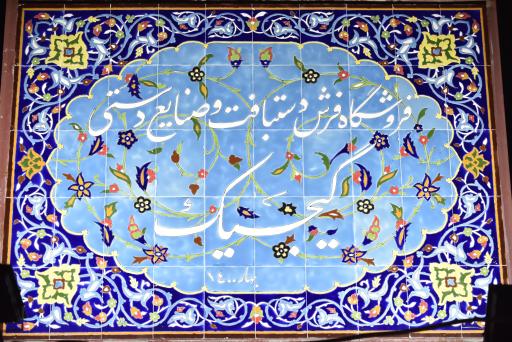 فروشگاه فرش دستبافت و صنایع دستی
گیجیک
بهار ۱۴۰۰